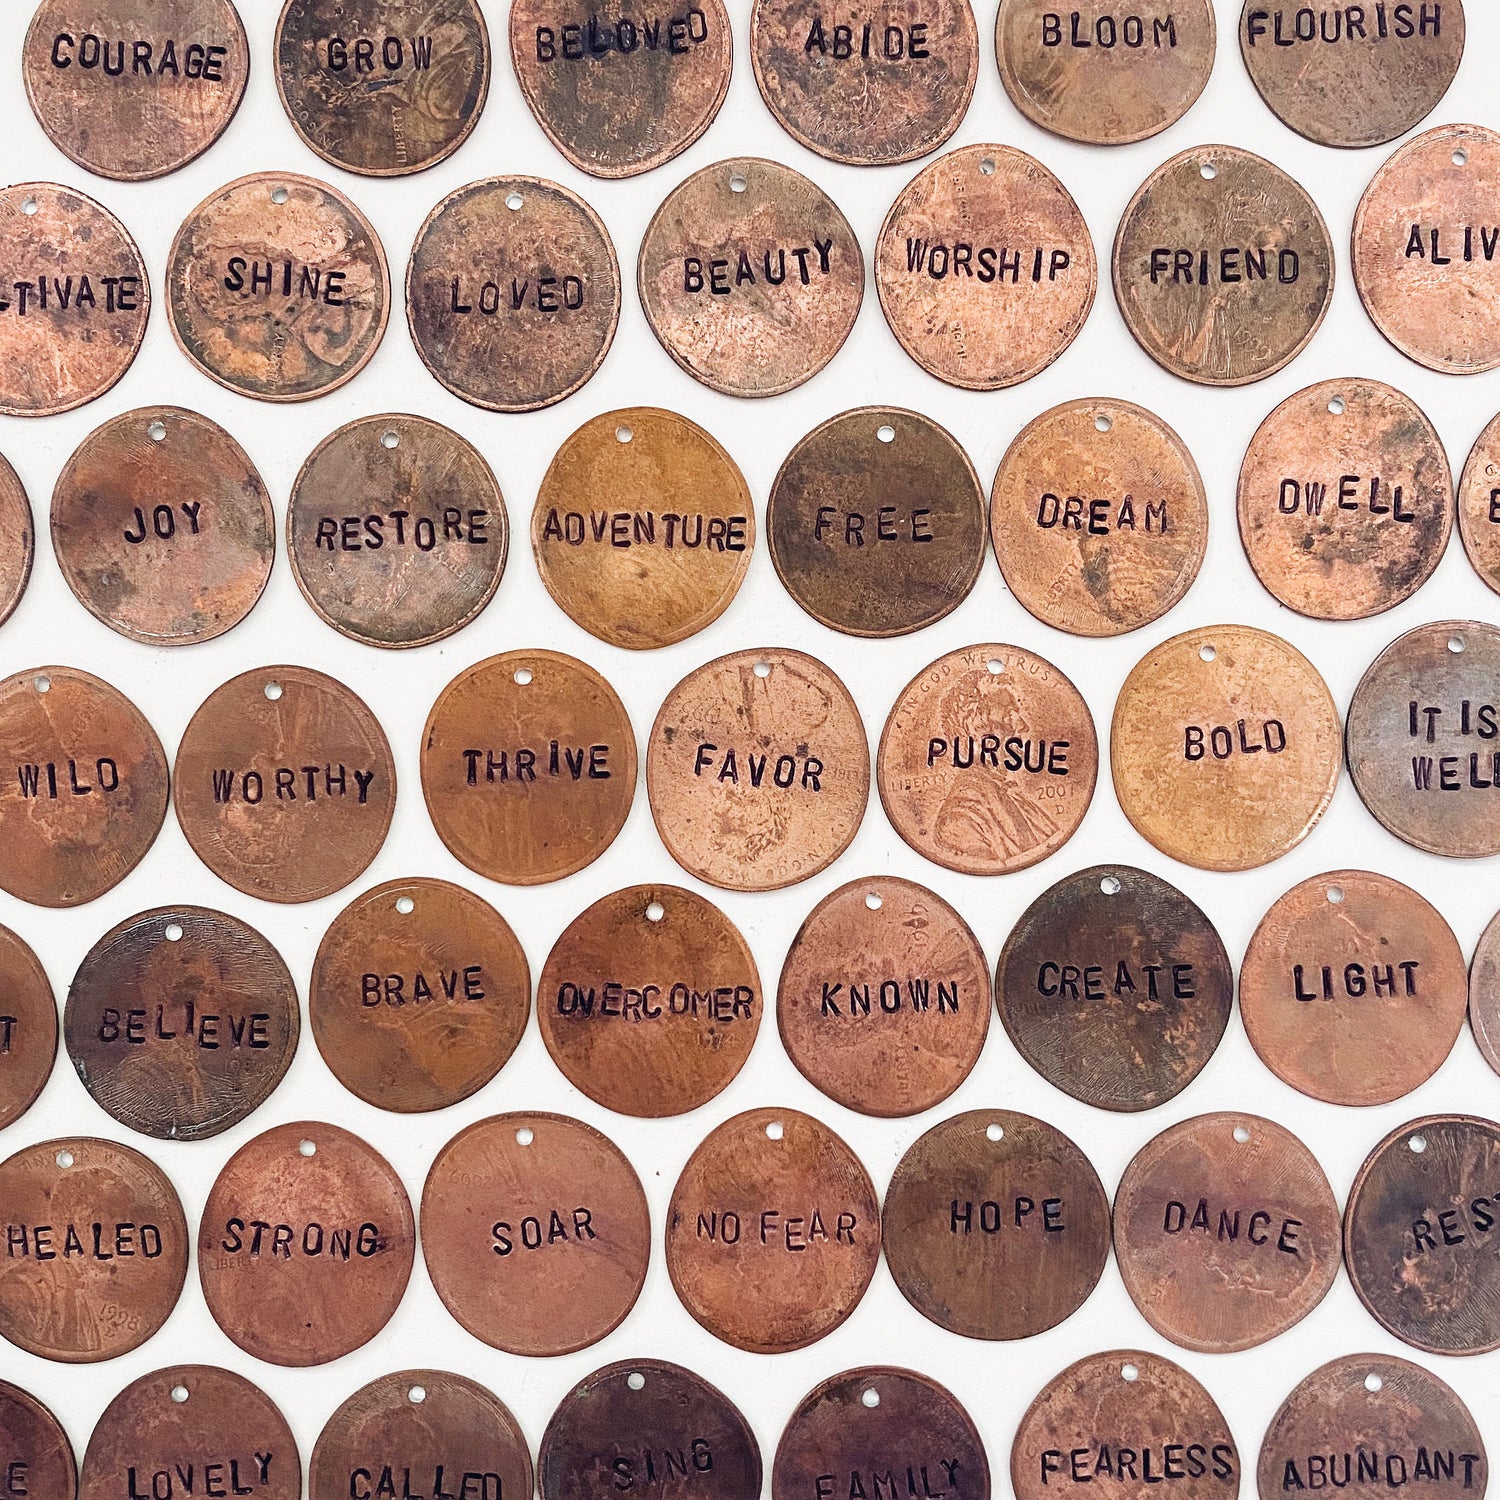 COURAGE
GROW
LIBERTY
BELOVED
ABIDE
BLOOM
FLOURISH
LTIVATE
SHINE
LOVED
BEAUTY
WORSHIP
FRIEND
ALIV
JOY
RESTORE
ADVENTURE
FREE
DREAM
LIBERTY
DWELL
WILD
WORTHY
THRIVE
FAVOR
IN GOD WE TRUST
PURSUE
LIBERTY
2001
D
BOLD
IT IS
WELL
BELIEVE
BRAVE
OVERCOMER
1974
KNOWN
LIBERTY
CREATE
LIGHT
HEALED
1998
STRONG
SOAR
NO FEAR
HOPE
DANCE
REST
LOVELY
CALLED
SING
FAMILY
FEARLESS
ABUNDANT